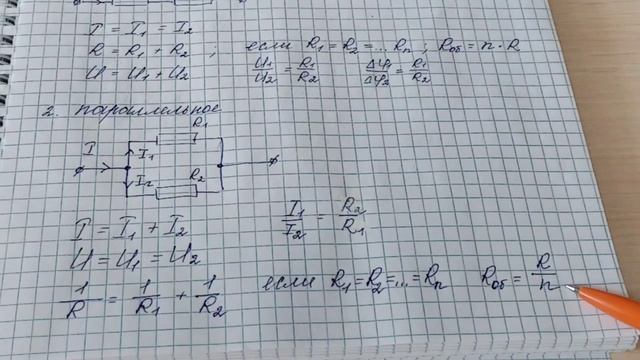 I = I₁ = I₂
R = R₁ + R₂ ; если R₁ = R₂ = ... Rₙ ; Rоб = n · R
U = U₁ + U₂ U₁/U₂ = R₁/R₂ Δφ₁/Δφ₂ = R₁/R₂
2. параллельное
R₁
I I₁
I₂ R₂
I = I₁ + I₂ I₁/I₂ = R₂/R₁
U = U₁ = U₂
1/R = 1/R₁ + 1/R₂ если R₁ = R₂ = ... = Rₙ Rоб = R/n